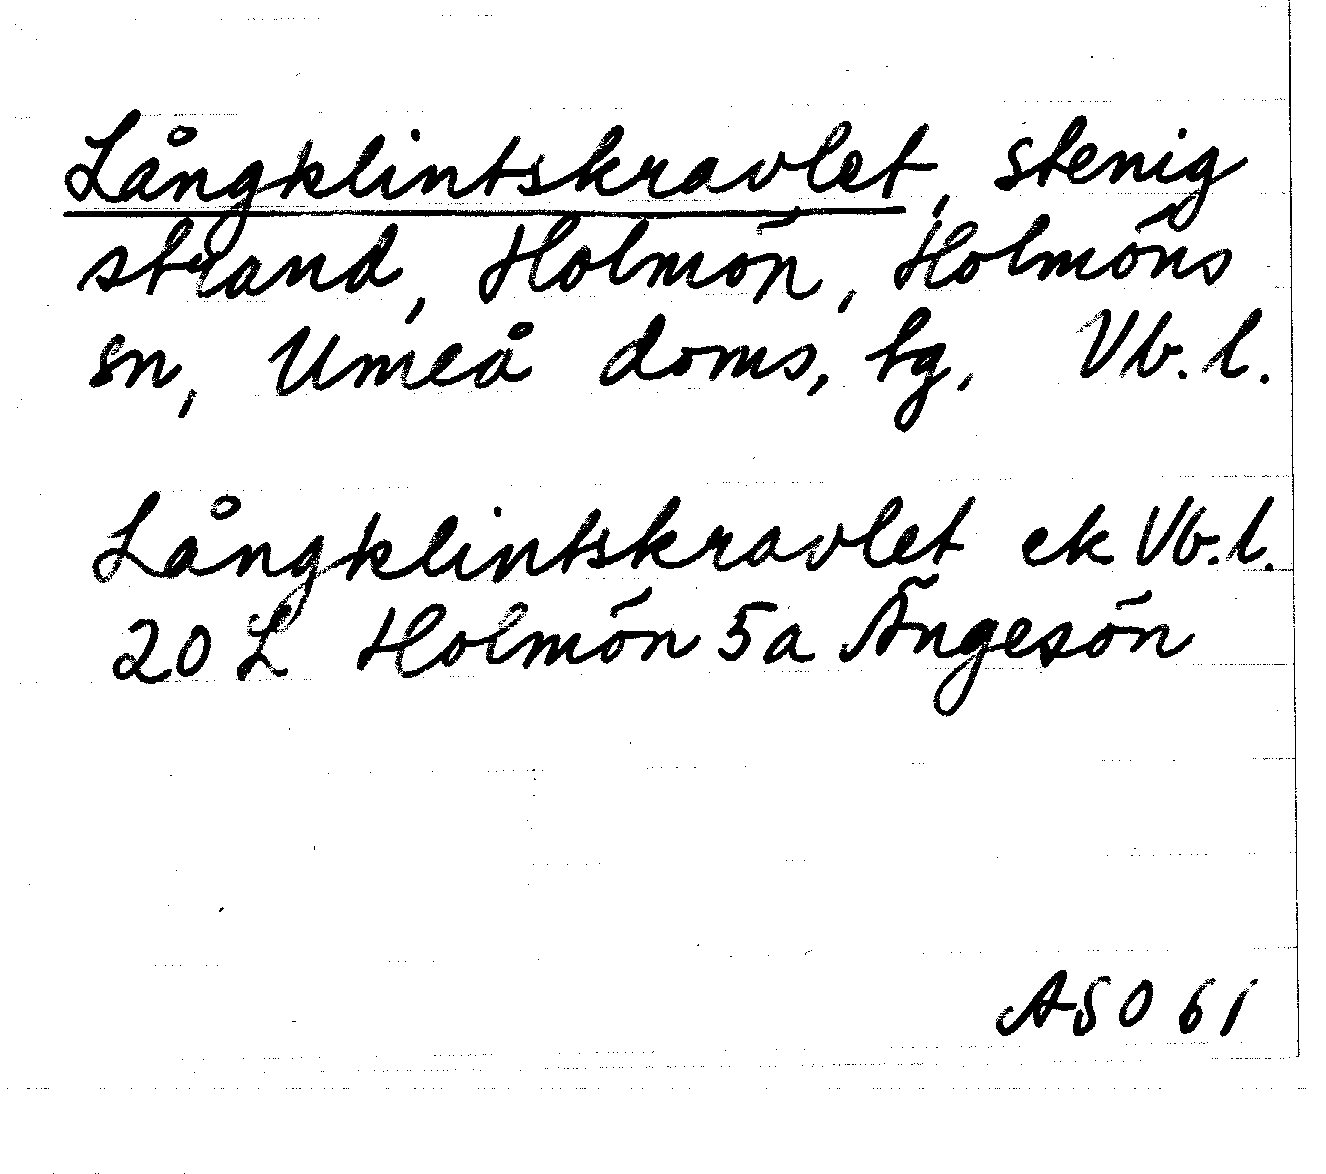 Långklintskravlet, stenig
strand, Holmön, Holmöns
sn, Umeå doms, tg, Vb. l.
Långklintskravlet ek Vb. l.
20 L Holmön 5a Ängesön
ASO 61